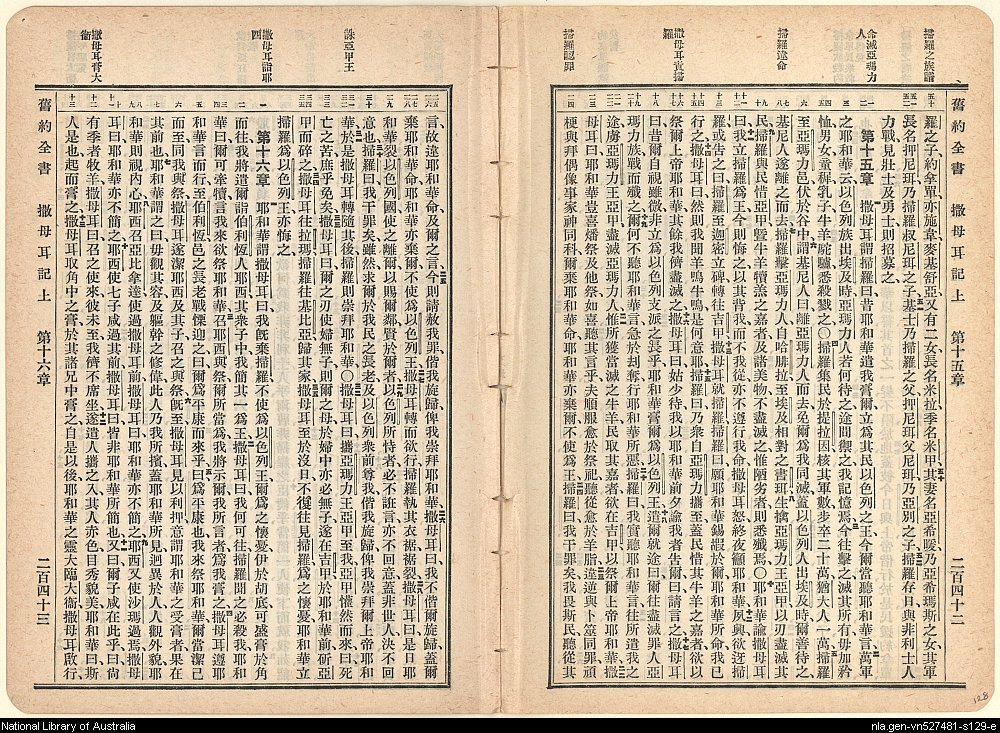 掃羅之族譜
命滅亞瑪力人
掃羅違命
撒母耳責掃羅
掃羅認罪
舊約全書 撒母耳記上 第十五章 二百四十二
羅之子約拿單亦施韋麥基舒亞又有二女長名米拉季名米甲其妻名亞希暖乃亞希瑪斯之女其軍
長名押尼珥乃掃羅叔尼珥之子基士乃掃羅之父押尼珥父尼珥乃亞別之子掃羅存日與非利士人
力戰見壯士及勇士則招募之
第十五章 撒母耳謂掃羅曰昔耶和華遣我膏爾立爲其民以色列之王今爾當聽耶和華言萬軍
之耶和華云以色列族出埃及時亞瑪力人若何待之途間禦之我記憶焉今往擊之滅其所有毋加矜
恤男女童穉乳子牛羊駝驢悉殺戮之〇掃羅集民於提拉因核其軍數步卒二十萬猶大人一萬掃羅
至亞瑪力邑伏於谷中謂基尼人曰離亞瑪力人而去免爾爲我同滅蓋以色列人出埃及時爾善待之
基尼人遂離之而去掃羅擊亞瑪力人自哈腓拉至埃及相對之書珥生擒亞瑪力王亞甲以刃盡滅其
民掃羅與民惜亞甲暨牛羊犢羔之嘉者及諸美物不盡滅之惟陋劣者則悉殲焉〇耶和華諭撒母耳
曰我立掃羅爲王今則悔之以其背我而不我從亦不遵行我命撒母耳怒終夜籲耶和華夙興欲迓掃
羅或告之曰掃羅至迦密立碑轉往吉甲撒母耳就掃羅掃羅曰願耶和華錫嘏於爾耶和華所命我已
行之撒母耳曰然則我聞羊鳴牛鳴是何意耶掃羅曰乃衆自亞瑪力攜至蓋民惜其牛羊之嘉者欲以
祭爾上帝耶和華其餘我儕盡滅之撒母耳曰姑少待我以耶和華前夕諭我者告爾曰請言之撒母耳
曰昔爾自視雖微非立爲以色列支派之長乎耶和華膏爾爲以色列王耶和華遣爾就途曰爾往盡滅罪人亞
瑪力族戰而殲之爾何不聽耶和華言急於刦奪行耶和華所惡掃羅曰我實聽耶和華言往所遣我之
途虜亞瑪力王亞甲盡滅亞瑪力人惟所獲當滅之牛羊民取其嘉者欲在吉甲以祭爾上帝耶和華撒
母耳曰耶和華豈喜燔祭及他祭如喜聽其言乎夫順服愈於祭祀聽從愈於羊脂違逆與卜筮同罪頑
梗與拜偶像事家神同科爾棄耶和華命耶和華亦棄爾不使爲王掃羅曰我干罪矣我畏斯民聽從其
誅亞甲王
撒母耳詣耶西
撒母耳膏大衞
言故違耶和華命及爾之言今則請赦我罪偕我旋歸俾我崇拜耶和華撒母耳曰我不偕爾旋歸蓋爾
棄耶和華命耶和華亦棄爾不使爲以色列王撒母耳轉而欲行掃羅執其衣裾裾裂撒母耳曰是日耶
和華裂以色列國使之離爾以賜爾鄰賢於爾者以色列所恃者必不誑言亦不回意蓋非世人決不回
意也掃羅曰我干罪矣雖然求爾於我民之長老及以色列衆前尊我偕我旋歸俾我崇拜爾上帝耶和
華於是撒母耳轉隨其後掃羅則崇拜耶和華〇撒母耳曰攜亞瑪力王亞甲至我亞甲懽然而來曰死
亡之苦其乎免矣撒母耳曰爾之刃使婦無子則爾之母於婦中亦必無子遂在吉甲於耶和華前斫亞
甲而碎之撒母耳往拉瑪掃羅往基比亞歸其家撒母耳至於沒日不復往見掃羅爲之懷憂耶和華立
掃羅爲以色列王亦悔之
第十六章 耶和華謂撒母耳曰我旣棄掃羅不使爲以色列王爾爲之懷憂伊於胡底可盛膏於角
而往我將遣爾詣伯利恆人耶西其衆子中我簡其一爲王撒母耳曰我何可往掃羅聞之必殺我耶和
華曰爾可牽犢言我來欲祭耶和華召耶西與祭爾所當爲我將示爾我所言者爲我膏之撒母耳遵耶
和華言而行至伯利恆邑之長老戰慄迎之曰爾爲平康而來乎曰爲平康也我來祭耶和華爾當潔己
而至同我與祭撒母耳遂潔耶西及其子召之與祭旣至撒母耳見以利押意謂耶和華之受膏者果在
其前也耶和華謂之曰毋觀其容及軀幹之修偉此人乃我所擯蓋耶和華所見迥異於人人觀外貌耶
和華則視內心耶西召亞比拿達使過撒母耳前撒母耳曰耶和華亦不簡之耶西又使沙瑪過焉撒母
耳曰耶和華亦不簡之耶西使七子咸過其前撒母耳曰皆非耶和華所簡也又曰爾子咸在此乎曰尚
有季者牧羊撒母耳曰召之使來彼未至我儕不席坐遂遣人攜之入其人赤色目秀貌美耶和華曰斯
人是也起而膏之撒母耳取角中之膏於其諸兄中膏之自是以後耶和華之靈大臨大衞撒母耳啟行
舊約全書 撒母耳記上 第十六章 二百四十三
128
National Library of Australia
nla.gen-vn527481-s129-e